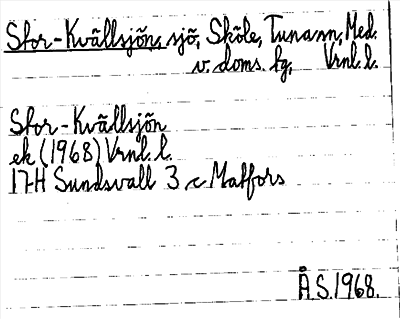 Stor-Kvällsjön, sjö, Sköle, Tuna sn, Med.
v. doms. fg, Vrnl. l.
Stor-Kvällsjön
ek (1968) Vrnl. l.
17H Sundsvall 3 c Matfors
Å.S. 1968.